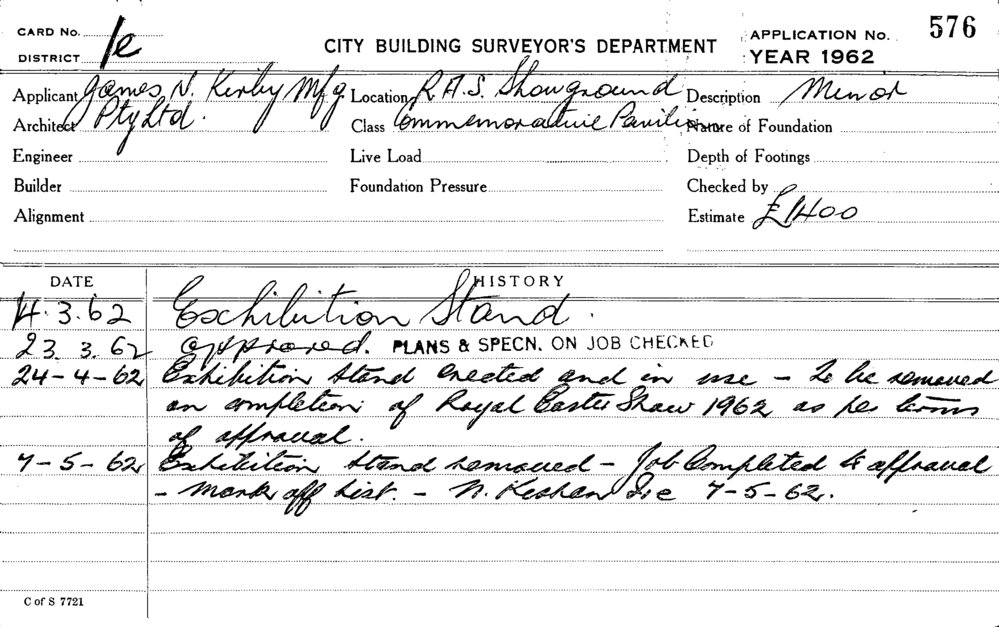 CARD No.
DISTRICT 1e
CITY BUILDING SURVEYOR'S DEPARTMENT
APPLICATION No. 576
YEAR 1962
Applicant James N. Kirby Mfg Location R.A.S. Showground Description Minor
Architect Pty Ltd. Class Commemorative Pavilion Nature of Foundation
Engineer Live Load Depth of Footings
Builder Foundation Pressure Checked by
Alignment Estimate £1400
DATE HISTORY
14.3.62 Exhibition Stand.
23.3.62 approved. PLANS & SPECN. ON JOB CHECKED
24-4-62 Exhibition stand erected and in use - To be removed
on completion of Royal Easter Show 1962 as per terms
of approval.
7-5-62 Exhibition stand removed - Job Completed to approval
- Mark off List. - N. 7-5-62.
C of S 7721